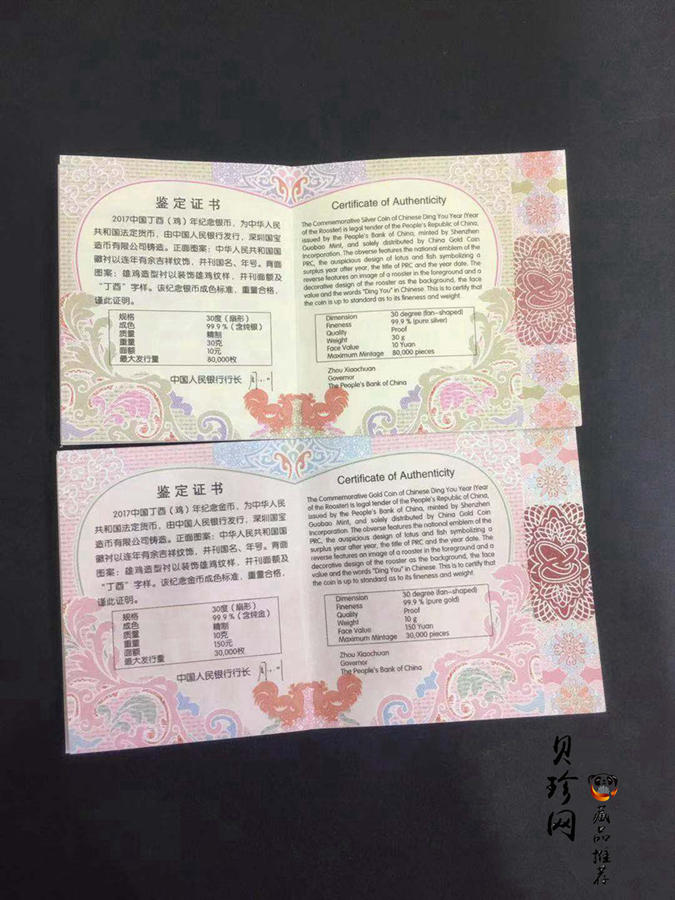 鉴定证书
2017中国丁酉（鸡）年纪念银币，为中华人民
共和国法定货币，由中国人民银行发行，深圳国宝
造币有限公司铸造。正面图案：中华人民共和国国
徽衬以连年有余吉祥纹饰，并刊国名、年号。背面
图案：雄鸡造型衬以装饰雄鸡纹样，并刊面额及
“丁酉”字样。该纪念银币成色标准，重量合格，
谨此证明。
规格 30度（扇形）
成色 99.9％（含纯银）
质量 精制
重量 30克
面额 10元
最大发行量 80,000枚
中国人民银行行长
Certificate of Authenticity
The Commemorative Silver Coin of Chinese Ding You Year (Year
of the Rooster) is legal tender of the People's Republic of China,
issued by the People's Bank of China, minted by Shenzhen
Guobao Mint, and solely distributed by China Gold Coin
Incorporation. The obverse features the national emblem of the
PRC, the auspicious design of lotus and fish symbolizing a
surplus year after year, the title of PRC and the year date. The
reverse features an image of a rooster in the foreground and a
decorative design of the rooster as the background, the face
value and the words "Ding You" in Chinese. This is to certify that
the coin is up to standard as to its fineness and weight.
Dimension 30 degree (fan-shaped)
Fineness 99.9 % (pure silver)
Quality Proof
Weight 30 g
Face Value 10 Yuan
Maximum Mintage 80,000 pieces
Zhou Xiaochuan
Governor
The People's Bank of China
鉴定证书
2017中国丁酉（鸡）年纪念金币，为中华人民
共和国法定货币，由中国人民银行发行，深圳国宝
造币有限公司铸造。正面图案：中华人民共和国国
徽衬以连年有余吉祥纹饰，并刊国名、年号。背面
图案：雄鸡造型衬以装饰雄鸡纹样，并刊面额及
“丁酉”字样。该纪念金币成色标准，重量合格，
谨此证明。
规格 30度（扇形）
成色 99.9％（含纯金）
质量 精制
重量 10克
面额 150元
最大发行量 30,000枚
中国人民银行行长
Certificate of Authenticity
The Commemorative Gold Coin of Chinese Ding You Year (Year
of the Rooster) is legal tender of the People's Republic of China,
issued by the People's Bank of China, minted by Shenzhen
Guobao Mint, and solely distributed by China Gold Coin
Incorporation. The obverse features the national emblem of the
PRC, the auspicious design of lotus and fish symbolizing a
surplus year after year, the title of PRC and the year date. The
reverse features an image of a rooster in the foreground and a
decorative design of the rooster as the background, the face
value and the words "Ding You" in Chinese. This is to certify that
the coin is up to standard as to its fineness and weight.
Dimension 30 degree (fan-shaped)
Fineness 99.9 % (pure gold)
Quality Proof
Weight 10 g
Face Value 150 Yuan
Maximum Mintage 30,000 pieces
Zhou Xiaochuan
Governor
The People's Bank of China
贝珍网
藏品推荐